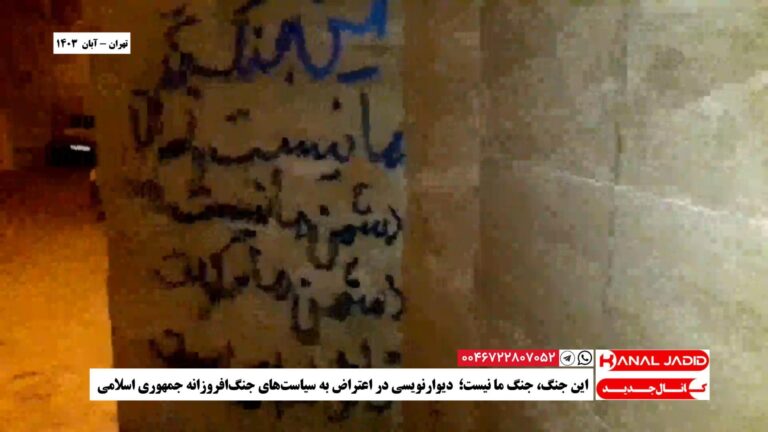 تهران – آبان ۱۴۰۳
این جنگ
ما نیست
دشمن ما نیست
دشمن ما
۰۰۴۶۷۲۲۸۰۷۰۵۲
KANAL JADID
کانال جدید
این جنگ، جنگ ما نیست؛ دیوارنویسی در اعتراض به سیاست‌های جنگ‌افروزانه جمهوری اسلامی